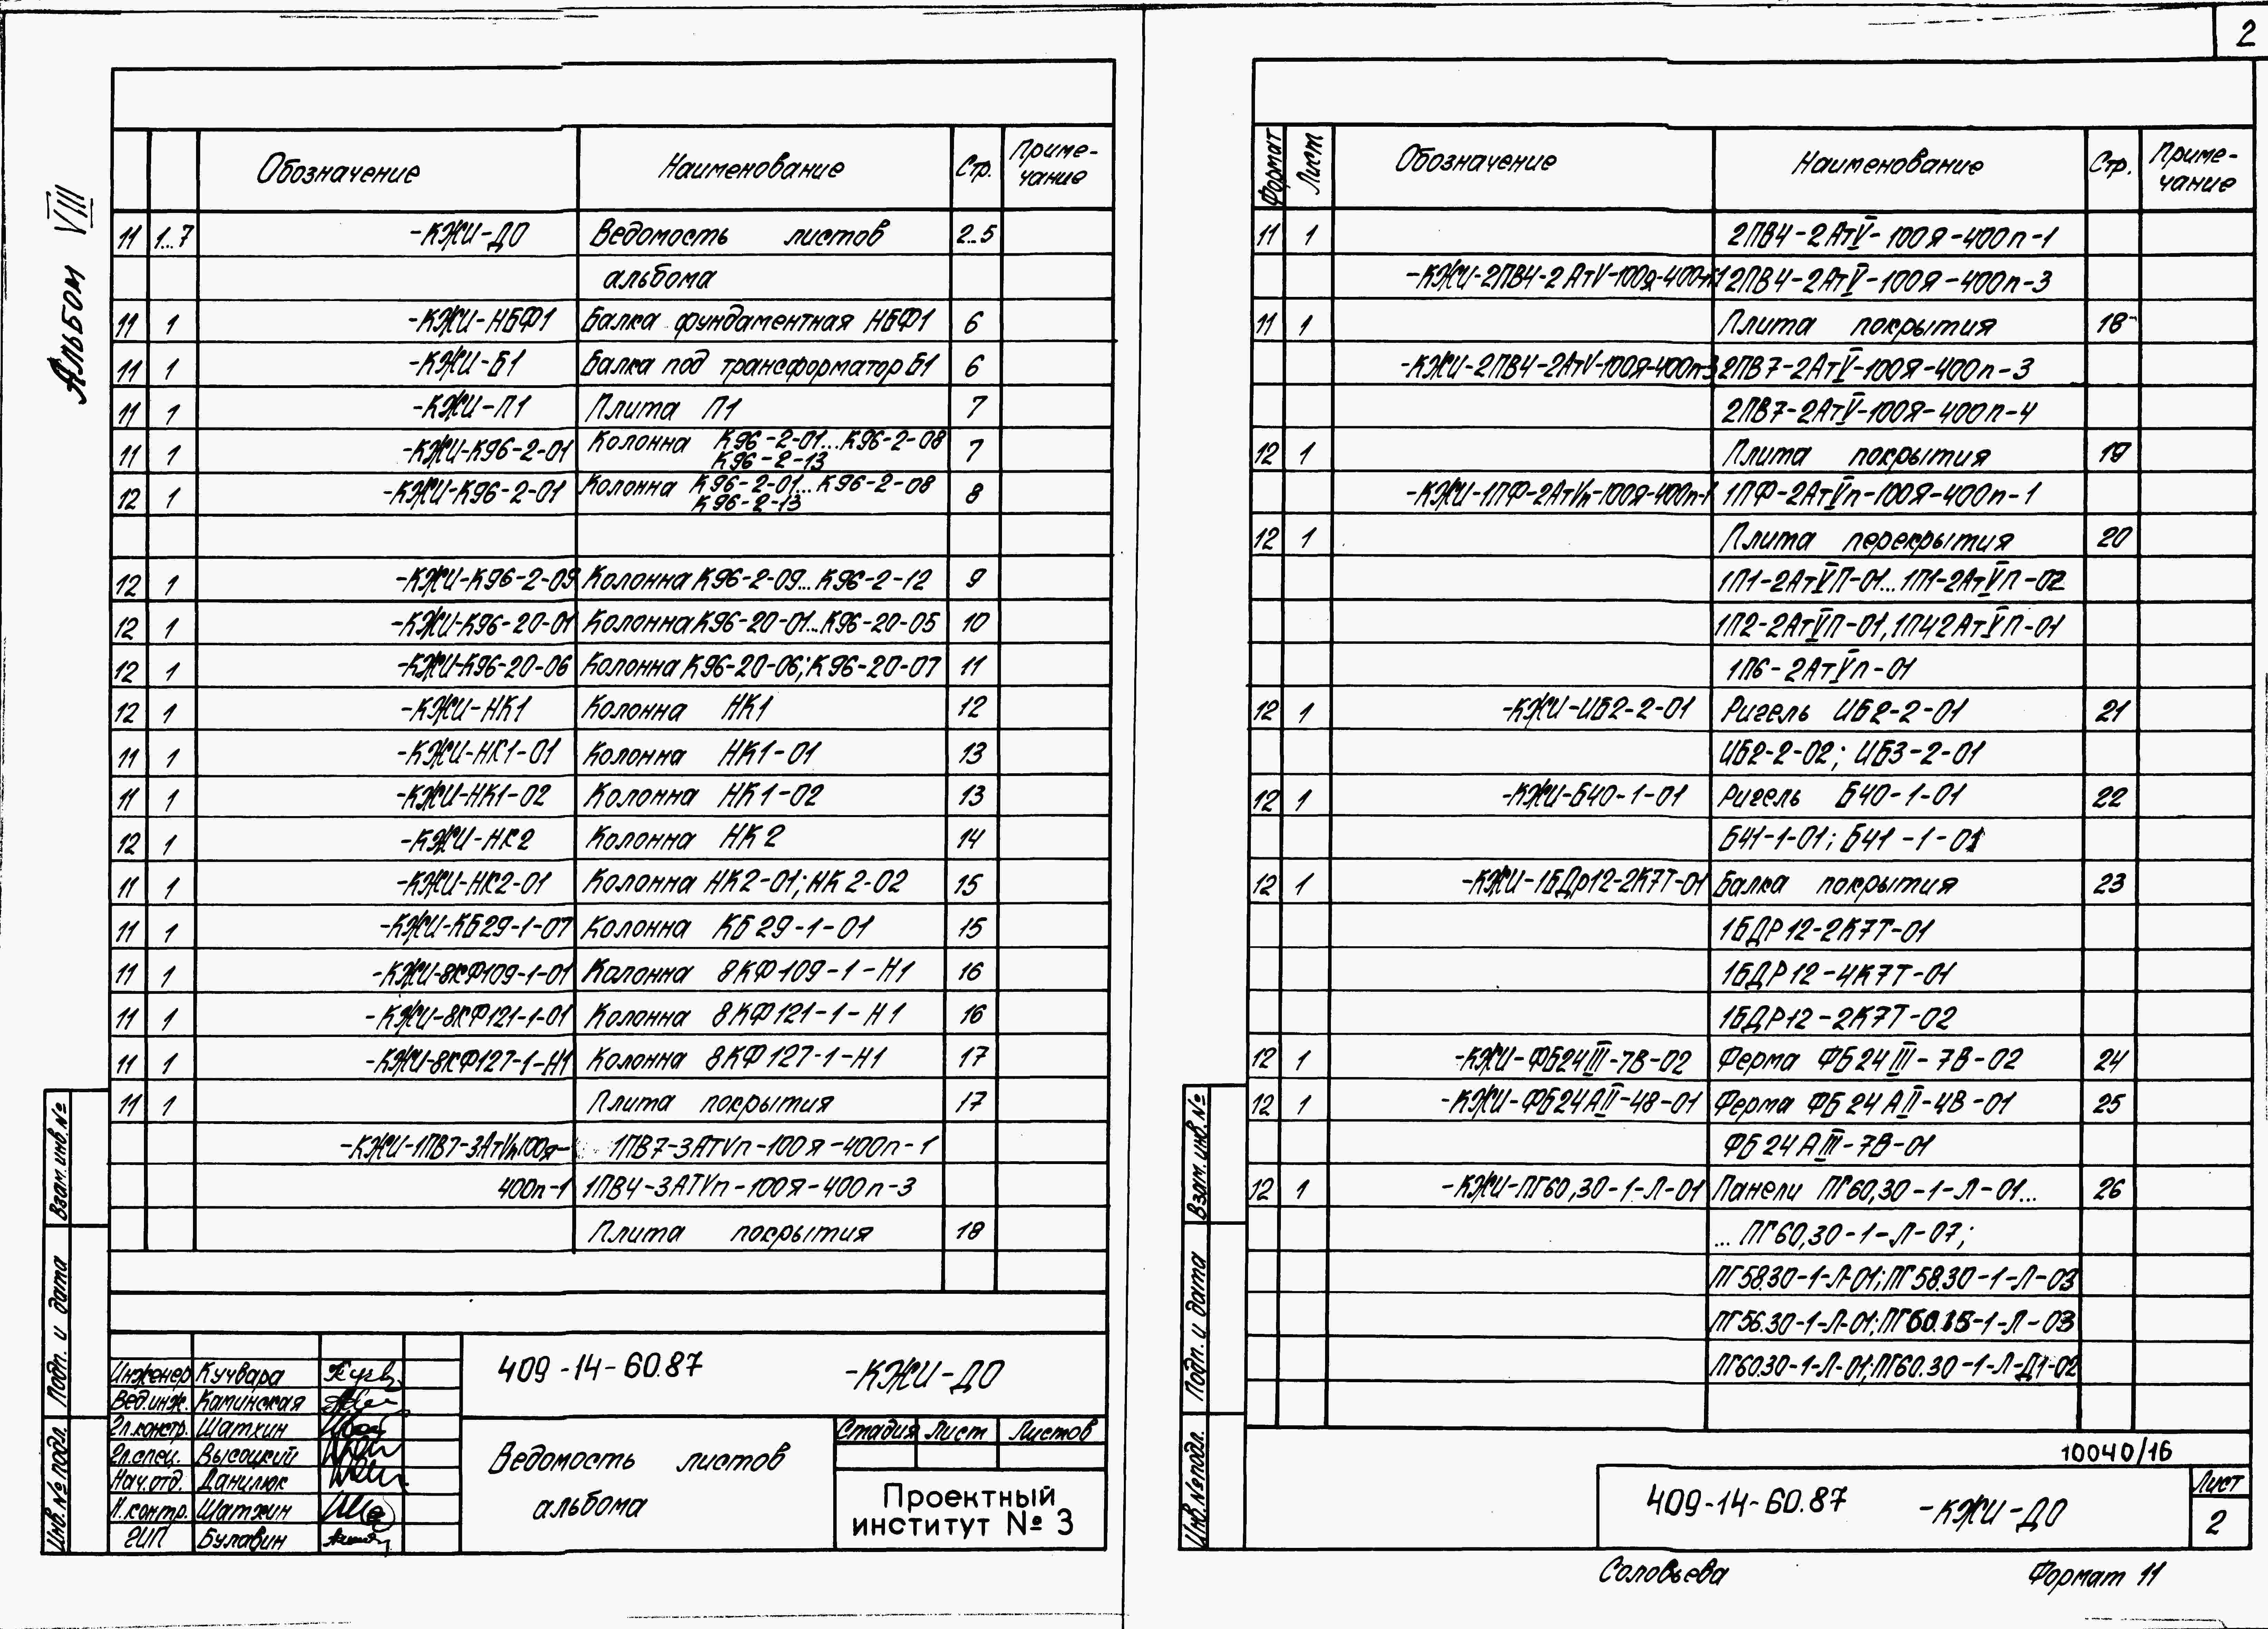 2
Альбом VIII
Обозначение Наименование Стр. Приме-
чание
11 1...7 -КЖИ-ДО Ведомость листов 2..5
альбома
11 1 -КЖИ-НБФ1 Балка фундаментная НБФ1 6
11 1 -КЖИ-Б1 Балка под трансформатор Б1 6
11 1 -КЖИ-П1 Плита П1 7
11 1 -КЖИ-К96-2-01 Колонна К96-2-01...К96-2-08 7
К96-2-13
12 1 -КЖИ-К96-2-01 Колонна К96-2-01...К96-2-08 8
К96-2-13
12 1 -КЖИ-К96-2-09 Колонна К96-2-09...К96-2-12 9
12 1 -КЖИ-К96-20-01 Колонна К96-20-01...К96-20-05 10
12 1 -КЖИ-К96-20-06 Колонна К96-20-06; К96-20-07 11
12 1 -КЖИ-НК1 Колонна НК1 12
11 1 -КЖИ-НК1-01 Колонна НК1-01 13
11 1 -КЖИ-НК1-02 Колонна НК1-02 13
12 1 -КЖИ-НК2 Колонна НК2 14
11 1 -КЖИ-НК2-01 Колонна НК2-01; НК2-02 15
11 1 -КЖИ-КБ29-1-07 Колонна КБ29-1-01 15
11 1 -КЖИ-8КФ109-1-01 Колонна 8КФ109-1-Н1 16
11 1 -КЖИ-8КФ121-1-01 Колонна 8КФ121-1-Н1 16
11 1 -КЖИ-8КФ127-1-Н1 Колонна 8КФ127-1-Н1 17
11 1 Плита покрытия 17
-КЖИ-1ПВ7-3АтVп100я- 1ПВ7-3АТVп-100я-400п-1
400п-1 1ПВ4-3АТVп-100Я-400п-3
Плита покрытия 18
Инженер Кучвара
Вед.инж. Каминская
Гл.констр. Шаткин
Гл.спец. Высоцкий
Нач.отд. Данилюк
Н.контр. Шаткин
ГИП Булавин
409-14-60.87 -КЖИ-ДО
Ведомость листов
альбома
Стадия Лист Листов
Проектный
институт № 3
Взам.инв.№
Подп. и дата
Инв.№ подл.
Формат Лист Обозначение Наименование Стр. Приме-
чание
11 1 2ПВ4-2АтV-100Я-400п-1
-КЖИ-2ПВ4-2АтV-100я-400п-1 2ПВ4-2АтV-100Я-400п-3
11 1 Плита покрытия 18
-КЖИ-2ПВ4-2АтV-100Я-400п-3 2ПВ7-2АтV-100Я-400п-3
2ПВ7-2АтV-100Я-400п-4
12 1 Плита покрытия 19
-КЖИ-1ПФ-2АтVп-100Я-400п-1 1ПФ-2АтVп-100Я-400п-1
12 1 Плита перекрытия 20
1П1-2АтVП-01...1П1-2АтVП-02
1П2-2АтVП-01, 1П42АтVП-01
1П6-2АтVп-01
12 1 -КЖИ-ИБ2-2-01 Ригель ИБ2-2-01 21
ИБ2-2-02; ИБ3-2-01
12 1 -КЖИ-Б40-1-01 Ригель Б40-1-01 22
Б41-1-01; Б41-1-01
12 1 -КЖИ-1БДр12-2К7Т-01 Балка покрытия 23
1БДР12-2К7Т-01
1БДР12-4К7Т-01
1БДР12-2К7Т-02
12 1 -КЖИ-ФБ24III-7В-02 Ферма ФБ24III-7В-02 24
12 1 -КЖИ-ФБ24АII-4В-01 Ферма ФБ24АII-4В-01 25
ФБ24АIII-7В-01
12 1 -КЖИ-ПГ60,30-1-Л-01 Панели ПГ60,30-1-Л-01... 26
...ПГ60,30-1-Л-07;
ПГ58.30-1-Л-01; ПГ58.30-1-Л-03
ПГ56.30-1-Л-01; ПГ60.15-1-Л-03
ПГ60.30-1-Л-01; ПГ60.30-1-Л-Д1-02
10040/16
409-14-60.87 -КЖИ-ДО
Лист
2
Взам.инв.№
Подп. и дата
Инв.№ подл.
Соловьева Формат 11